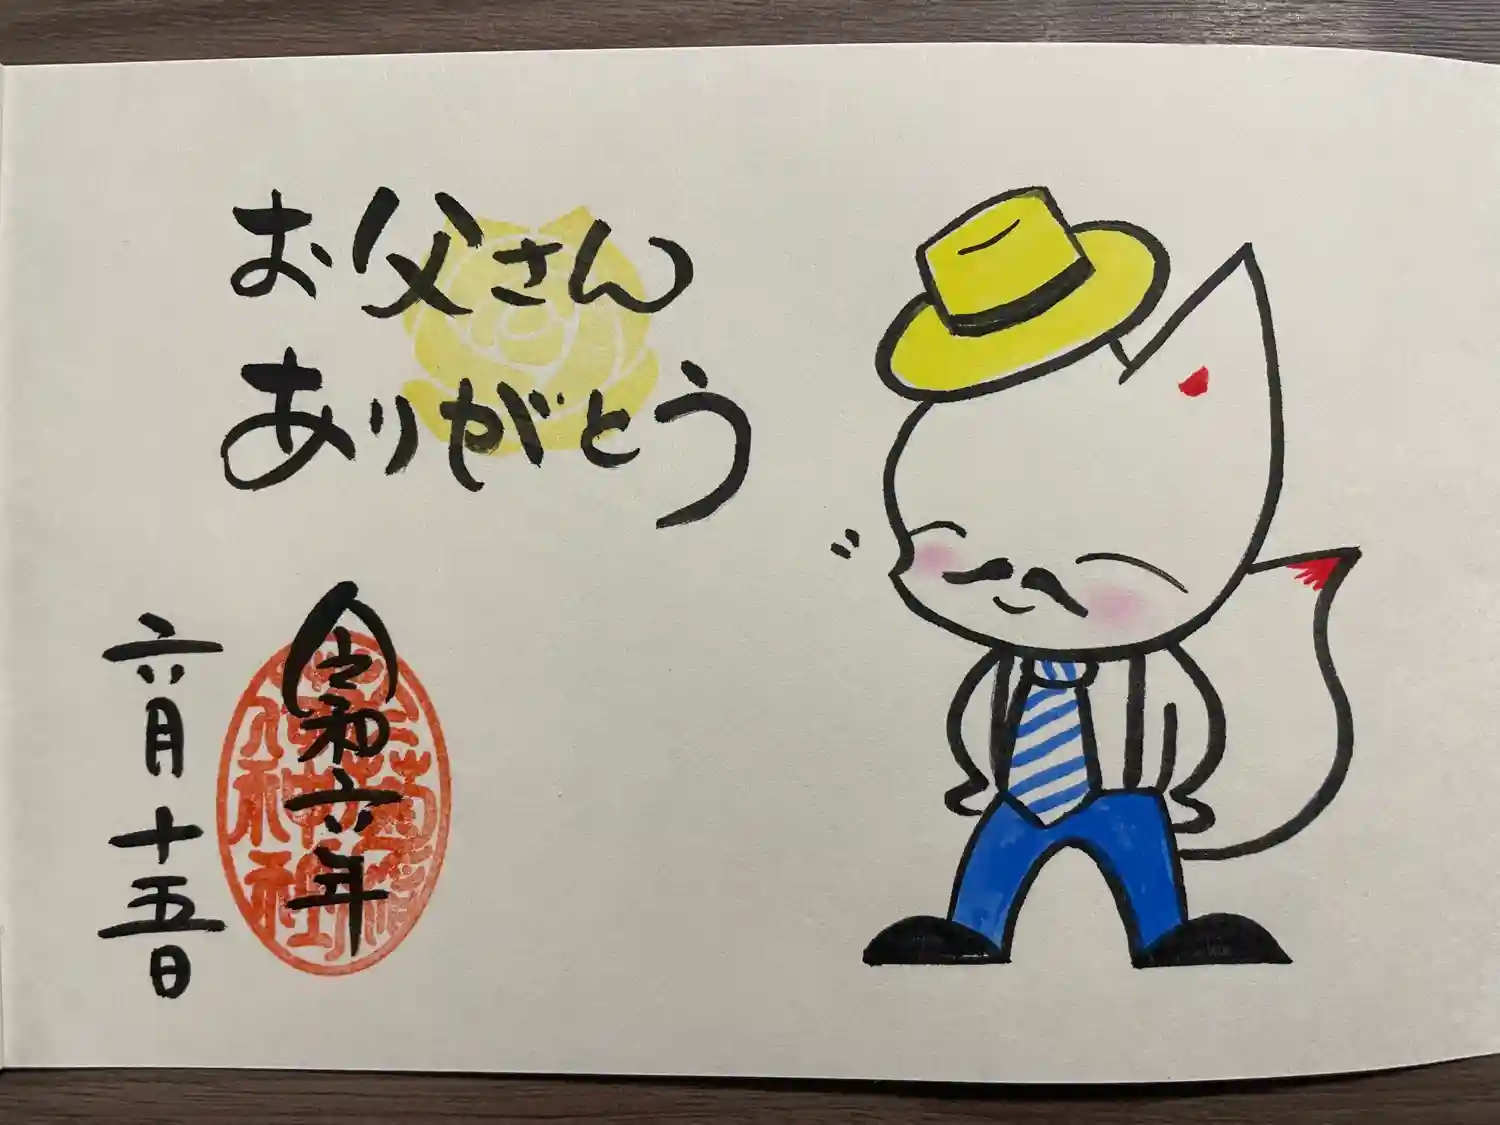 お父さん
ありがとう
令和六年
六月十五日